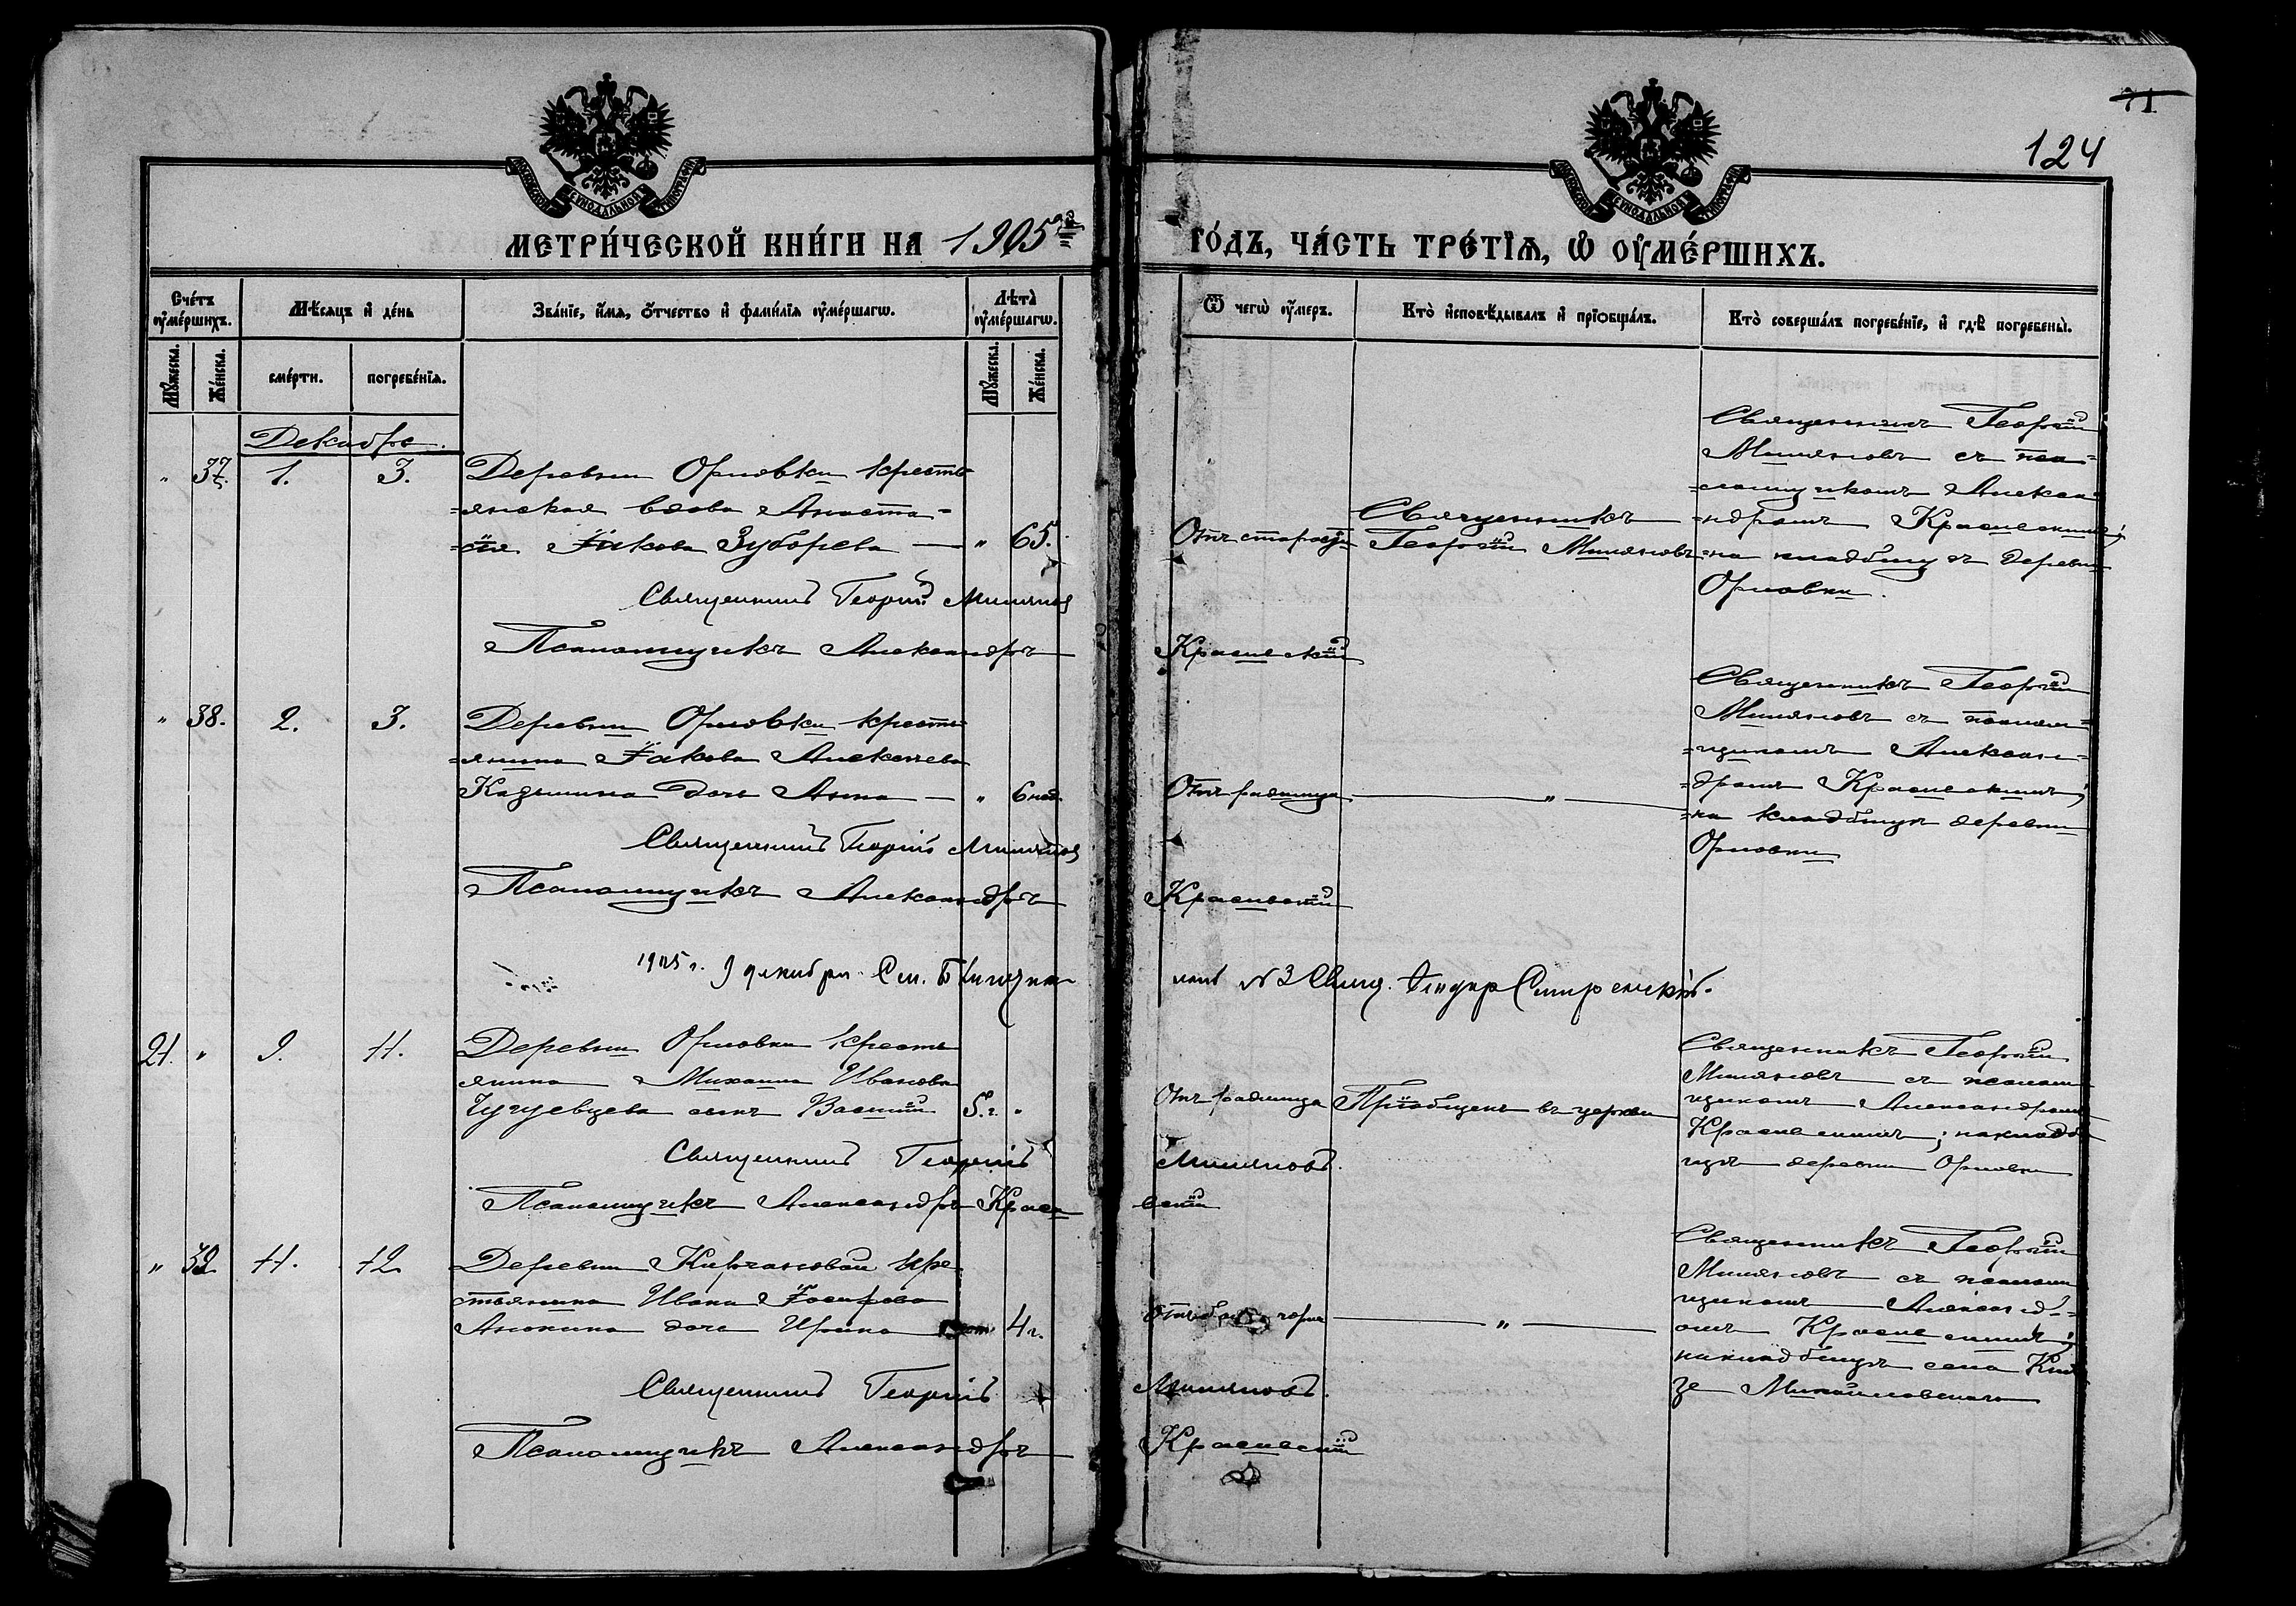 71
124
МЕТРИ́ЧЕСКОЙ КНИ́ГИ НА 1905й
ГО́ДЪ, ЧА́СТЬ ТРЕ́ТІѦ, Ѡ҆ ОУ҆МЕ́РШИХЪ.
Сче́тъ оу҆ме́ршихъ.
Мѣ́сяцъ и҆ де́нь
Зва́нїе, и҆́мя, ѻ҆́тчество и҆ фами́лїя оу҆ме́ршагѡ.
Лѣта̀ оу҆ме́ршагѡ.
Ѿ чегѡ̀ оу҆́меръ.
Кто̀ и҆сповѣ́дывалъ и҆ прїѻбща́лъ.
Кто̀ соверша́лъ погребе́нїе, и҆ гдѣ̀ погребены̀.
Мꙋ́жеска.
Же́нска.
сме́рти.
погребе́нїя.
Мꙋ́жеска.
Же́нска.
Декабрь.
" 37. 1. 3.
Деревни Орловки кресть-
=янская вдова Анаста-
=сія Іакова Зубарева — " 65.
Отъ старости
Священникъ
Георгій Миляновъ
Священникъ Георгій
Миляновъ съ пса=
=ломщикомъ Алекса
=ндромъ Красневскимъ;
=на кладбищѣ деревни
Орловки.
Священникъ Георгій Миляновъ
Псаломщикъ Александръ Красневскій
" 38. 2. 3.
Деревни Орловки кресть
=янина Іакова Алексѣева
Кадыкина дочь Анна — " 6 нед.
Отъ родимца — " —
Священникъ Георгій
Миляновъ съ псалом=
=щикомъ Алексан=
=дромъ Красневскимъ;
=на кладбищѣ деревни
Орловки
Священникъ Георгій Миляновъ
Псаломщикъ Александръ Красневскій
1905 г. 9 декабря. См. Благочин
ный № 3 Свящ. Смиренскій.
21. " 9. 11.
Деревни Орловки кресть
янина Михаила Иванова
Чугуевцева сынъ Василій 5 г. "
Отъ родимца
Пріобщенъ въ церкви
Священникъ Георгій
Миляновъ съ псалом
щикомъ Александромъ
Красневскимъ; на кладби
щѣ деревни Орловки
Священникъ Георгій Миляновъ.
Псаломщикъ Александръ Красневскій
" 39 11. 12
Деревни Кирчановой кре
стьянина Ивана Іосифова
Анокина дочь Ирина " 4 г.
— " —
Священникъ Георгій
Миляновъ съ псалом
щикомъ Александр=
омъ Красневскимъ;
на кладбищѣ села Кня
зе Михайловскаго
Священникъ Георгій Миляновъ.
Псаломщикъ Александръ Красневскій